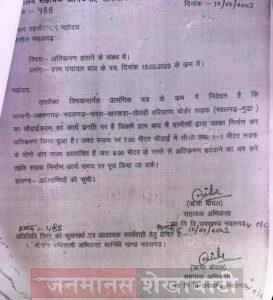 सहायक अभियन्ता
क्रमांक :- 488
दिनांक :- 10/04/2023
तहसीलदार महोदय
नवलगढ़
विषय – अतिक्रमण हटाने के संबंध में।
प्रसंग:– ग्राम पंचायत बाय के पत्र, दिनांक 15.02.2023 के क्रम में।
महोदय
उपरोक्त विषयान्तर्गत प्रासंगिक पत्र के क्रम में निवेदन है कि
हरियाणा बोर्डर सड़क (नवलगढ़–गुढा)
का चौड़ाईकरण का कार्य प्रगति पर है जिसमें ग्राम बाय में ग्रामीणों द्वारा पक्का अतिक्रमण
किया हुआ है। उक्त सड़क पर 7.00 मीटर चौड़ाई में सी.सी. तथा 1–1 मीटर सड़क
के दोनों ओर नाला प्रस्तावित है अतः 9.00 मीटर के रास्ते से अतिक्रमण हटवाने का श्रम करें
ताकि सड़क निर्माण कार्य समय पर पूरा किया जा सके।
संलग्न:– अतिक्रमियों की सूची।
सहायक अभियन्ता
दिनांक :- 10/04/2023
प्रतिलिपि निम्न को सूचनार्थ एवं आवश्यक कार्यवाही हेतु प्रेषित है:–
1. श्रीमान अधिशाषी अभियन्ता सानिवि खण्ड नवलगढ़।
जनमानस शेखावाटी
सहायक अभियन्ता